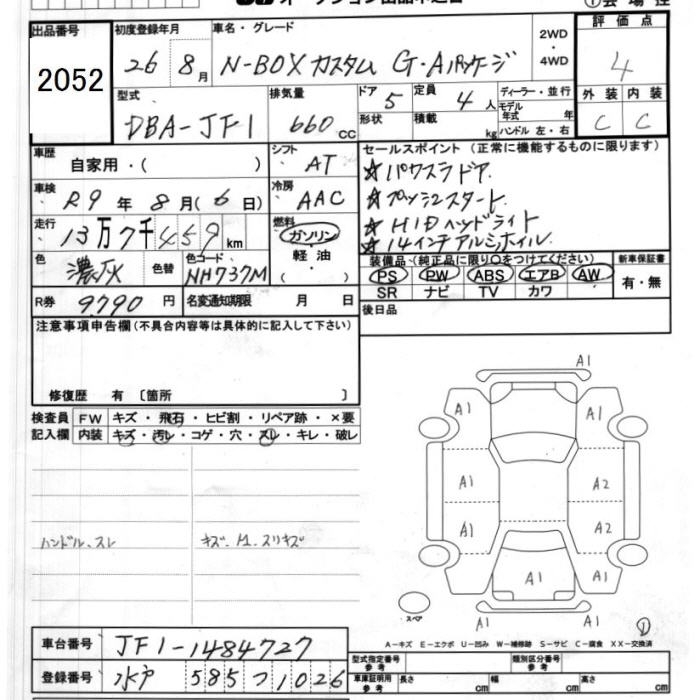 出品番号 初度登録年月 車名・グレード 2WD・4WD 評価点
2052 26年 8月 N-BOXカスタム G・Aパッケージ 4
型式 排気量 ドア 5 定員 4人 ディーラー・並行 外装 内装
DBA-JF1 660cc 形状 積載 kg モデル年式 年 ハンドル 左・右 C C
車歴 自家用・( ) シフト AT セールスポイント (正常に機能するものに限ります)
☆パワスラドア
車検 R9年 8月(6日) 冷房 AAC ☆プッシュスタート
☆HIDヘッドライト
走行 13万7千459km 燃料 ガソリン・軽油・( ) ☆14インチアルミホイル
色 濃灰 色替 色コード NH737M 装備品(純正品に限り○をつけてください) 新車保証書
PS PW ABS エアB AW 有・無
SR ナビ TV カワ
R券 9790円 名変通知期限 月 日 後日品
注意事項申告欄(不具合内容等は具体的に記入して下さい)
修復歴 有 〔箇所 〕
検査員 FW キズ・飛石・ヒビ割・リペア跡・×要
記入欄 内装 キズ・汚レ・コゲ・穴・スレ・キレ・破レ
ハンドル、スレ
A1
A1 A1
A1 A2
A1 A2
A1 A1
A1 A1
スペア
①
A－キズ E－エクボ U－凹み W－補修跡 S－サビ C－腐食 XX－交換済
車台番号 JF1-1484727
型式指定番号 参考 類別区分番号 参考
登録番号 水戸 585 つ 1026
車庫証明用 参考 長さ cm 幅 cm 高さ cm